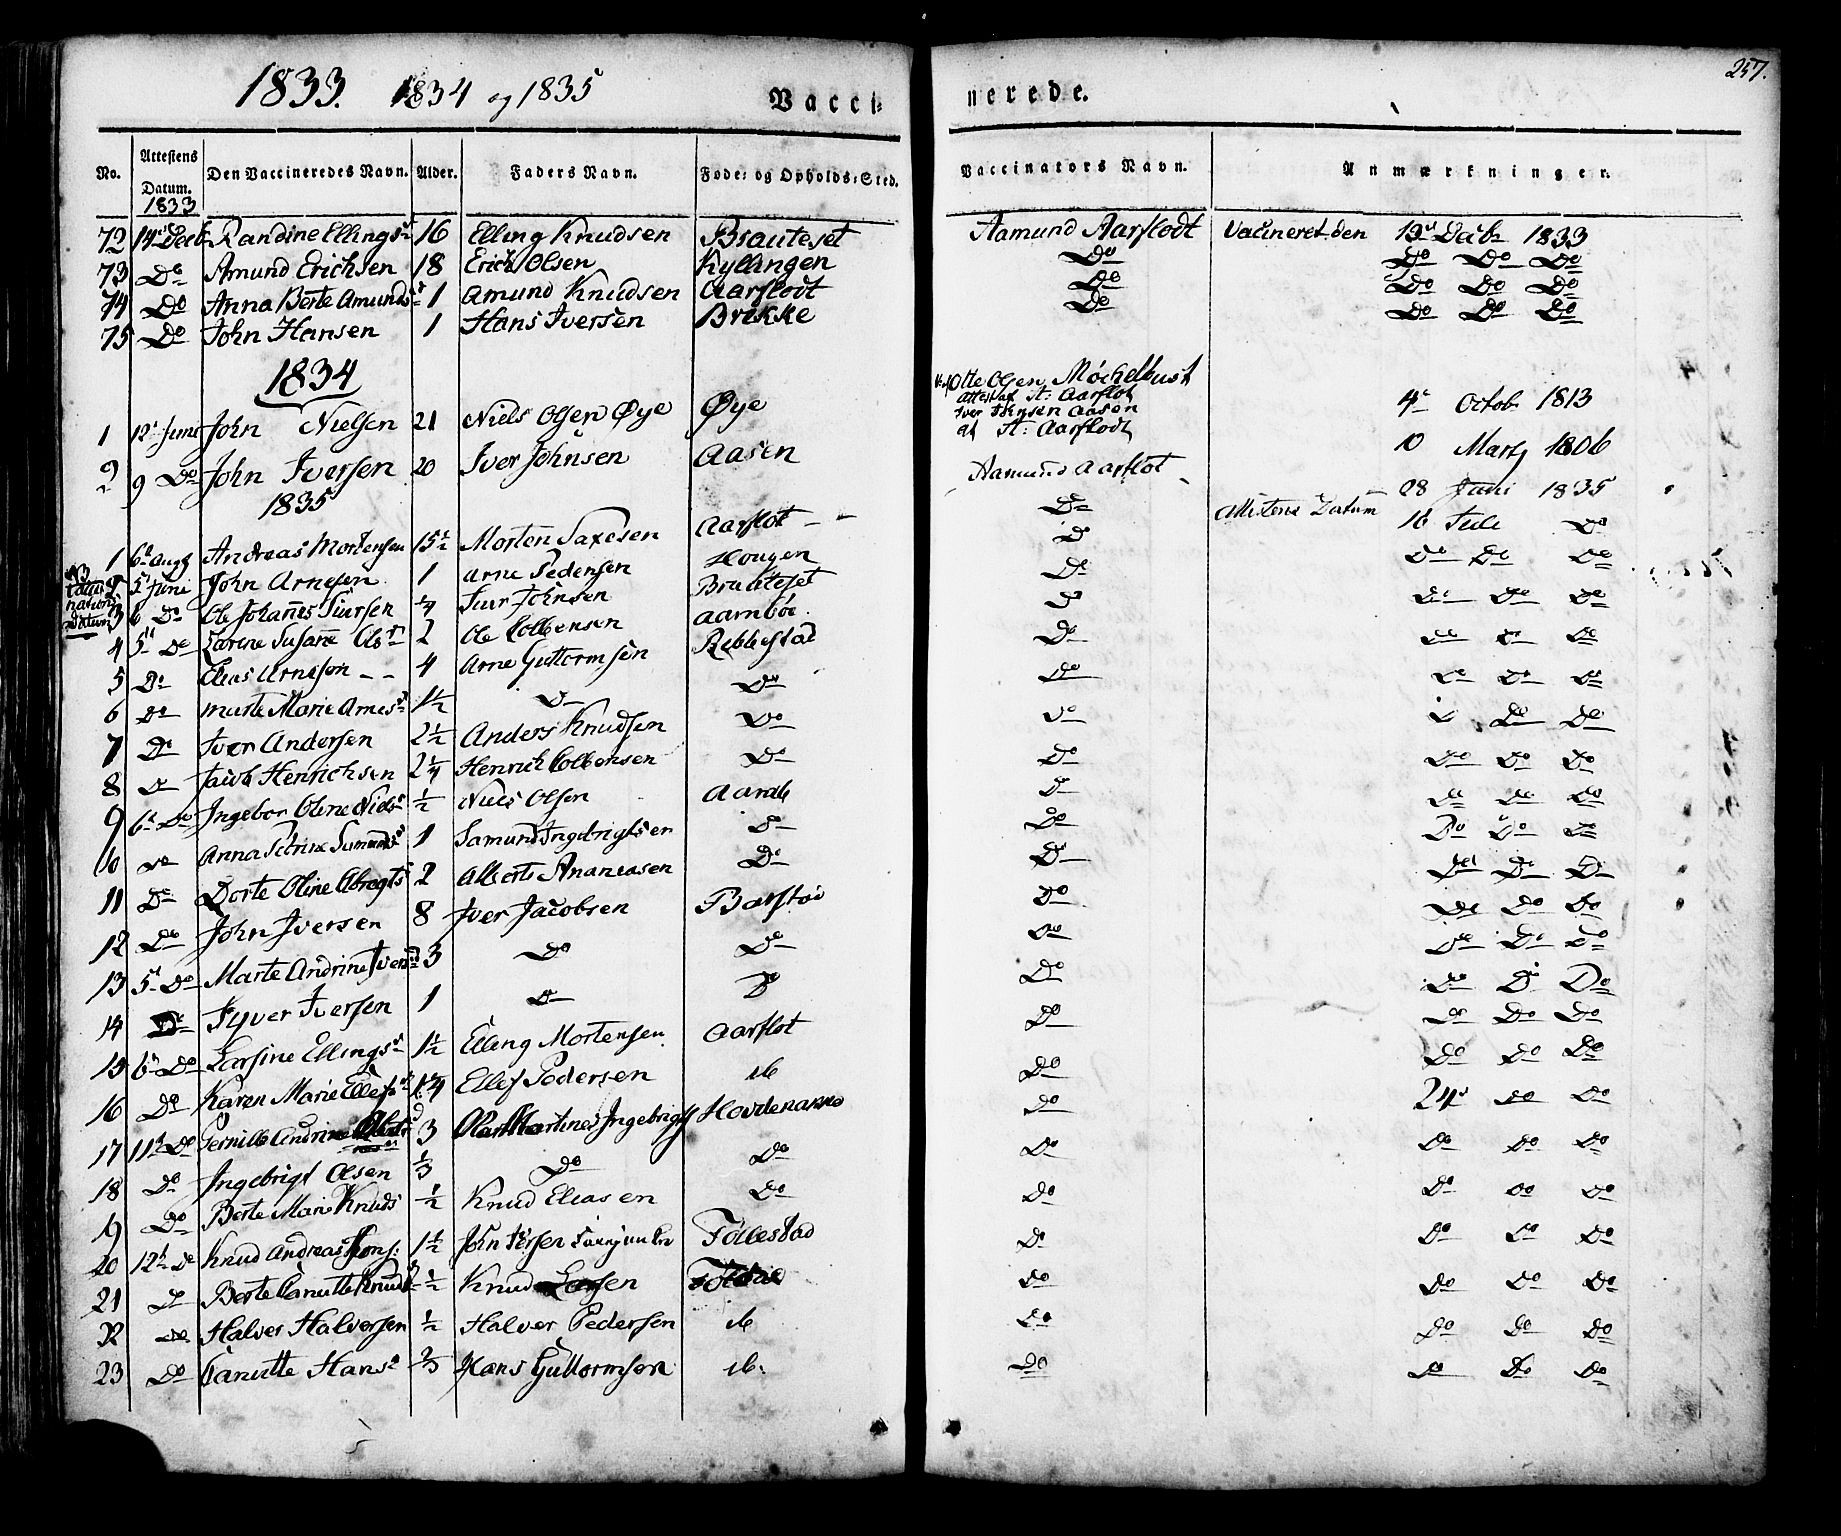 257.
1833. 1834 og 1835 Vacci- nerede.
No. Attestens Datum. Den Vaccineredes Navn. Alder. Faders Navn. Føde- og Opholds-Sted. Vaccinators Navn. Anmærkninger.
1833
72 14de Decb Randine Ellingsd 16 Elling Knudsen Brauteset Aamund Aarflodt Vacineret den 13de Decbr 1833
73 Do Amund Erichsen 18 Erich Olsen Kyllingen Do Do Do Do
74 Do Anna Berte Amundsd 1 Amund Knudsen Aarflodt Do Do Do Do
75 Do John Hansen 1 Hans Iversen Brekke Do Do Do Do
1834
1 12t Juni John Nielsen 21 Niels Olsen Øye Øye Otte Olsen Møchelbust attest af A: Aarflot 4de Octob 1813
2 9 Do John Iversen 20 Iver Johnsen Aasen Iver Johnsen Aasen af A: Aarflodt 10 Marts 1806
1835
1 6te Aug Andreas Mortensen 15½ Morten Saxesen Aarflot Aamund Aarflot 28 Juni 1835
2 5t Juni John Arnesen 1 Arne Pedersen Hougen Do Attestens Datum 16 Juli Do
3 6 Do Ole Johannes Iversen ¼ Iver Johnsen Brauteset D Do Do Do
4 5te Do Karine Susane Olsd 2 Ole Colbensen Aambøe Do Do Do Do
5 Do Elias Arneson 4 Arne Guttormsen Rebbestad Do Do Do Do
6 Do Marte Marie Arnesd 1½ Do Do Do Do Do Do
7 Do Iver Andersen 2½ Anders Knudsen Do Do Do Do
8 D Jacob Henrichsen 2¼ Henrich Colbensen Do Do Do Do Do
9 6t Do Ingebor Oline Nielsd ½ Niels Olsen Aardb Do Do Do Do
10 Do Anna 1 Samund Ingebrigtsen Do Do Do Do Do
11 Do Dorte Oline 2 Albert Ananiasen Do Do Do Do Do
12 Do John Iversen 8 Iver Jacobsen Barstad Do Do Do Do
13 5t Do Marte Andrine Iversd 3 Do Do Do Do Do Do
14 Do Syver Iversen 1 Do Do Do Do Do Do
15 6t Do Larsine Ellingsd 1½ Elling Mortensen Aarflot Do Do Do Do
16 Do Karen Marie Ellefsd 1¼ Ellef Pedersen ib Do Do Do Do
17 11t Do Pernille Andrine 3 Martines Ingebrigts Hovdenakke Do 24d Do Do
18 Do Ingebrigt Olsen ⅓ Do Do Do Do Do Do
19 Do Berte Marie Knuds ½ Knud Eliasen Do Do Do Do Do
20 12t Do Knud Andreas 1½ John Føllestad Do Do Do Do
21 Do Berte Canutte Knuds ½ Knud Larsen Do Do Do Do
22 Do Halver Halversen ½ Halver Pedersen ib Do Do Do Do
23 Do Canutte Hansd ⅔ Hans Guttormsen ib: Do Do Do Do